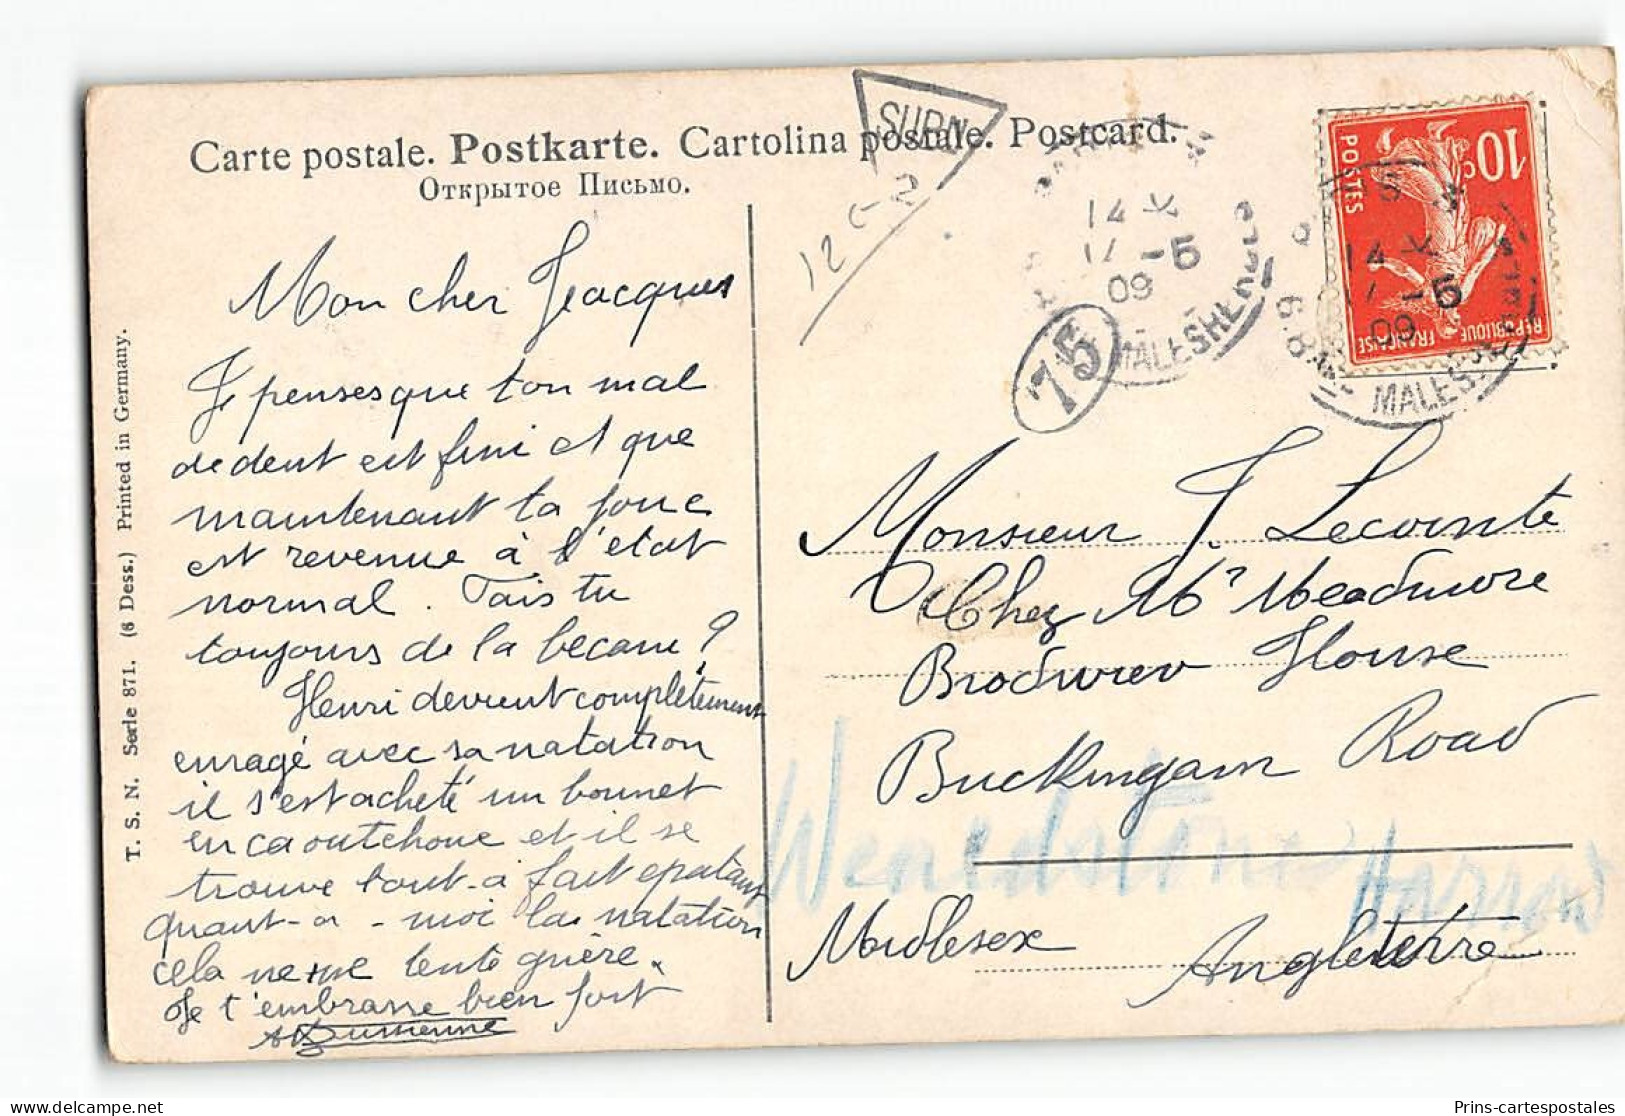 Carte postale. Postkarte. Cartolina postale. Postcard.
Открытое Письмо.
SURN
12 5-2
14 K
17 -5
09
MALESHE
75
10c
POSTES
REPUBLIQUE FRANÇAISE
14 K
17 -5
09
MALES
Mon cher Jacques
Je penses que ton mal
de dent est fini et que
maintenant ta joue
est revenue à l'état
normal. Fais tu
toujours de la becane?
Henri devient complètement
enragé avec sa natation
il s'est acheté un bonnet
en caoutchouc et il se
trouve tout-à fait epatant
quant-a-moi la natation
cela ne me tente guère.
Je t'embrasse bien fort
Monsieur J. Lecointe
Chez Mr Meadmore
Brodwiev House
Buckingam Road
Wenedstone Harrow
Midlesex Angleterre
T. S. N. Serie 871. (6 Dess.) Printed in Germany.
Prins-cartespostales